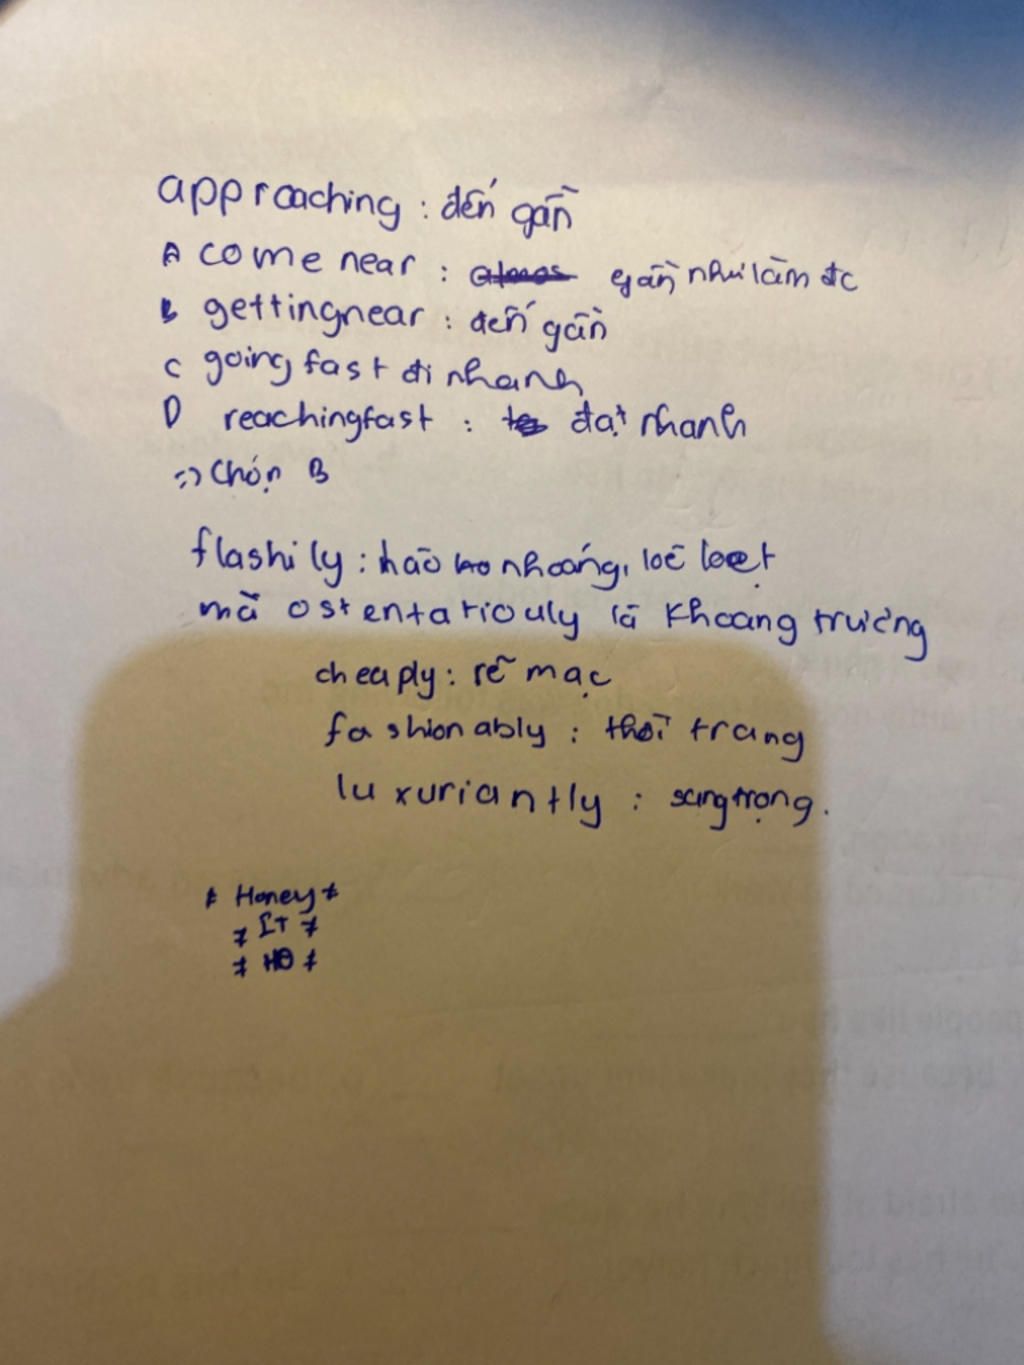 approaching : đến gần
A come near : gần như làm đc
B gettingnear : đến gần
C going fast đi nhanh
D reachingfast : đạt nhanh
=> Chọn B
flashily : hào nhoáng, loè loẹt
mà ostentatiouly là khoang trương
cheaply : rẽ mạc
fashionably : thời trang
luxuriantly : sang trọng.
* Honey *